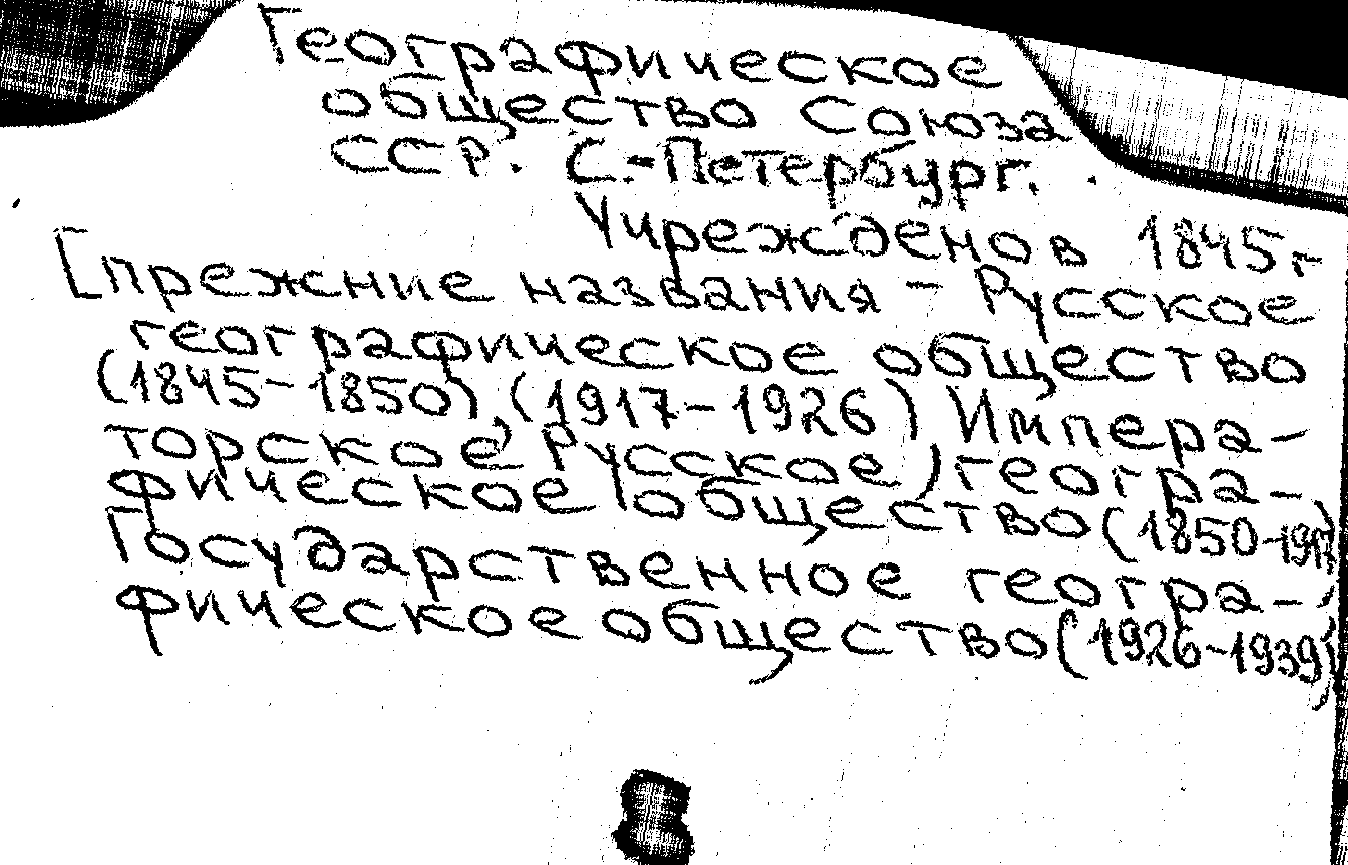 Географическое
общество Союза
ССР. С.-Петербург.
Учрежден в 1845 г.
[прежние названия - Русское
географическое общество
(1845-1850), (1917-1926) Импера-
торское Русское геогра-
фическое общество (1850-1917),
Государственное геогра-
фическое общество (1926-1939)